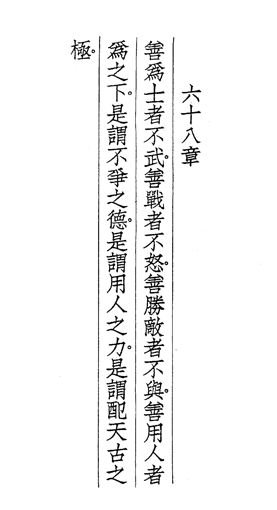 六十八章
善爲士者不武。善戰者不怒。善勝敵者不與。善用人者
爲之下。是謂不爭之德。是謂用人之力。是謂配天古之
極。